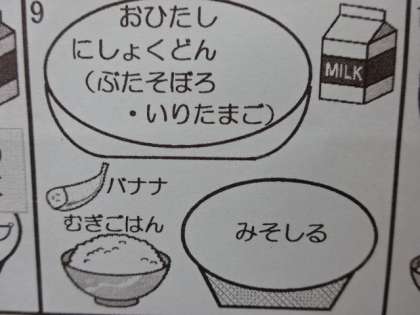 9
おひたし
にしょくどん
(ぶたそぼろ
・いりたまご)
MILK
バナナ
むぎごはん
みそしる